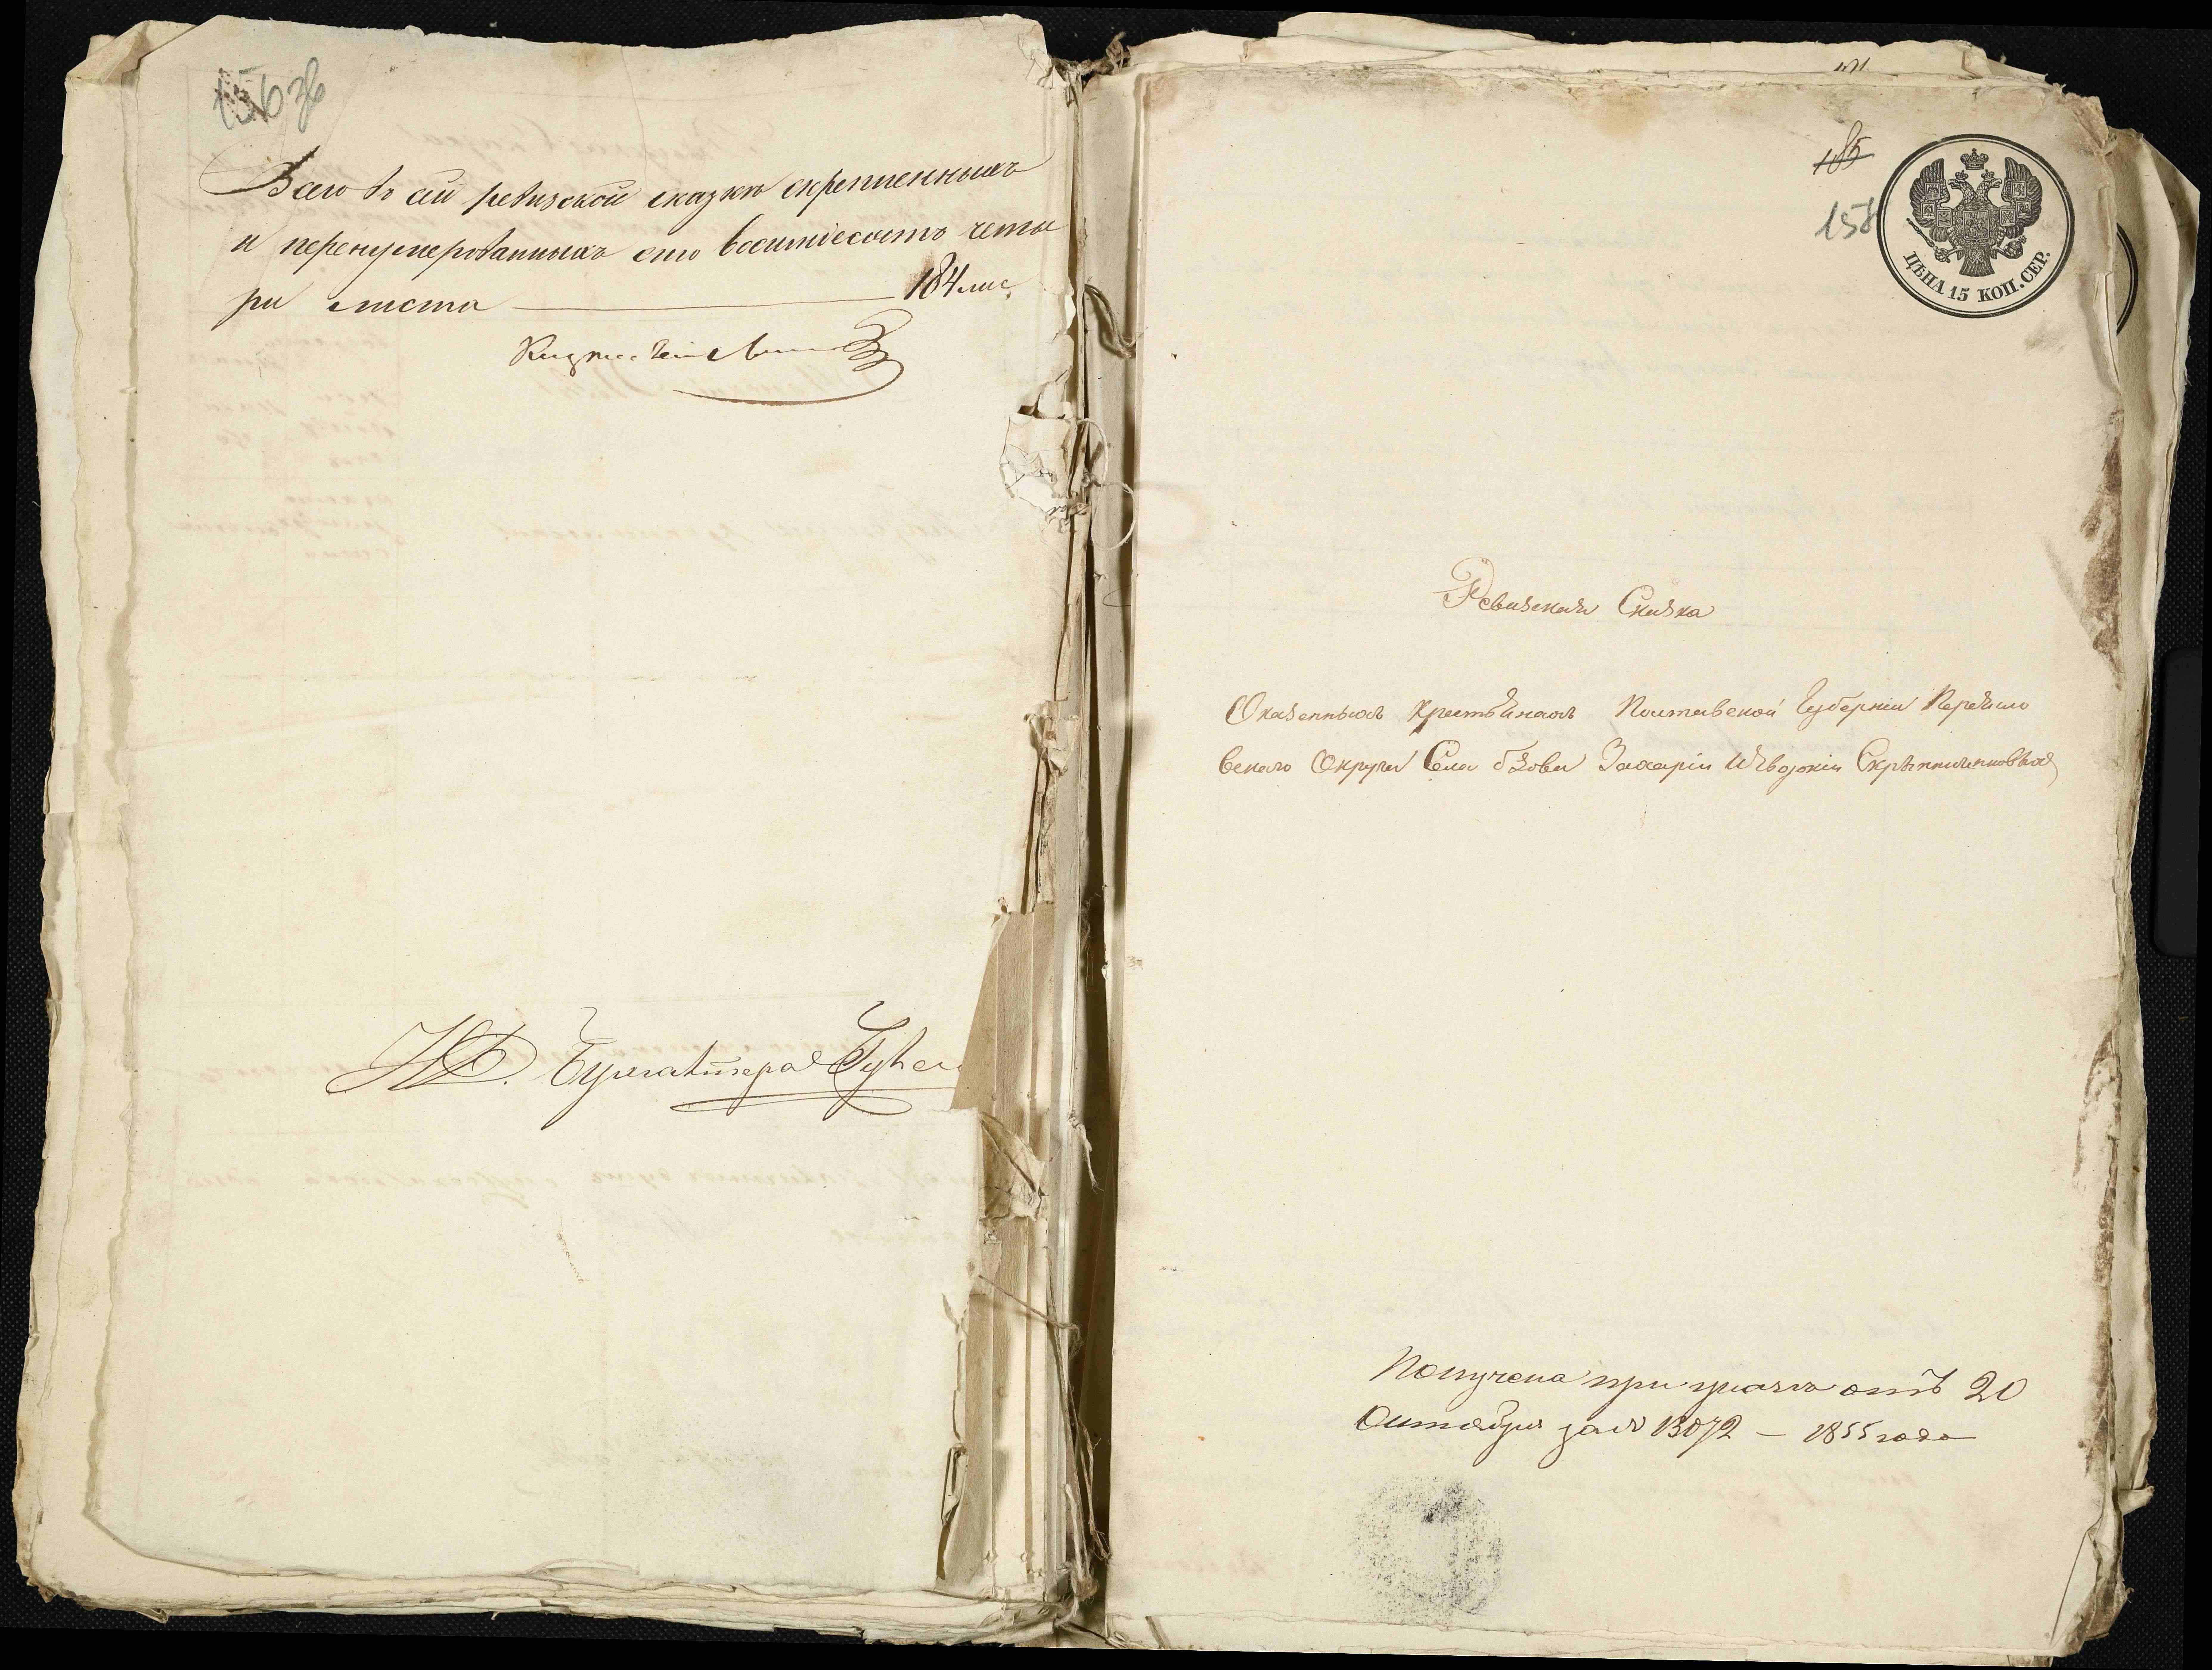 156 зв
Всего въ сей ревизской сказке скрепленныхъ
и перенумерованныхъ сто восемдесятъ четы
ри листа 184 лис.
Бухгалтеръ
185
158
ЦѢНА 15 КОП. СЕР.
Ревизская Сказка
О казенныхъ крестьянахъ Полтавской Губерніи Переясло
вскаго Округа Села Захаріи Скрѣпниченковыхъ
Получена при указѣ отъ 20
Октября за № 13072 – 1855 года